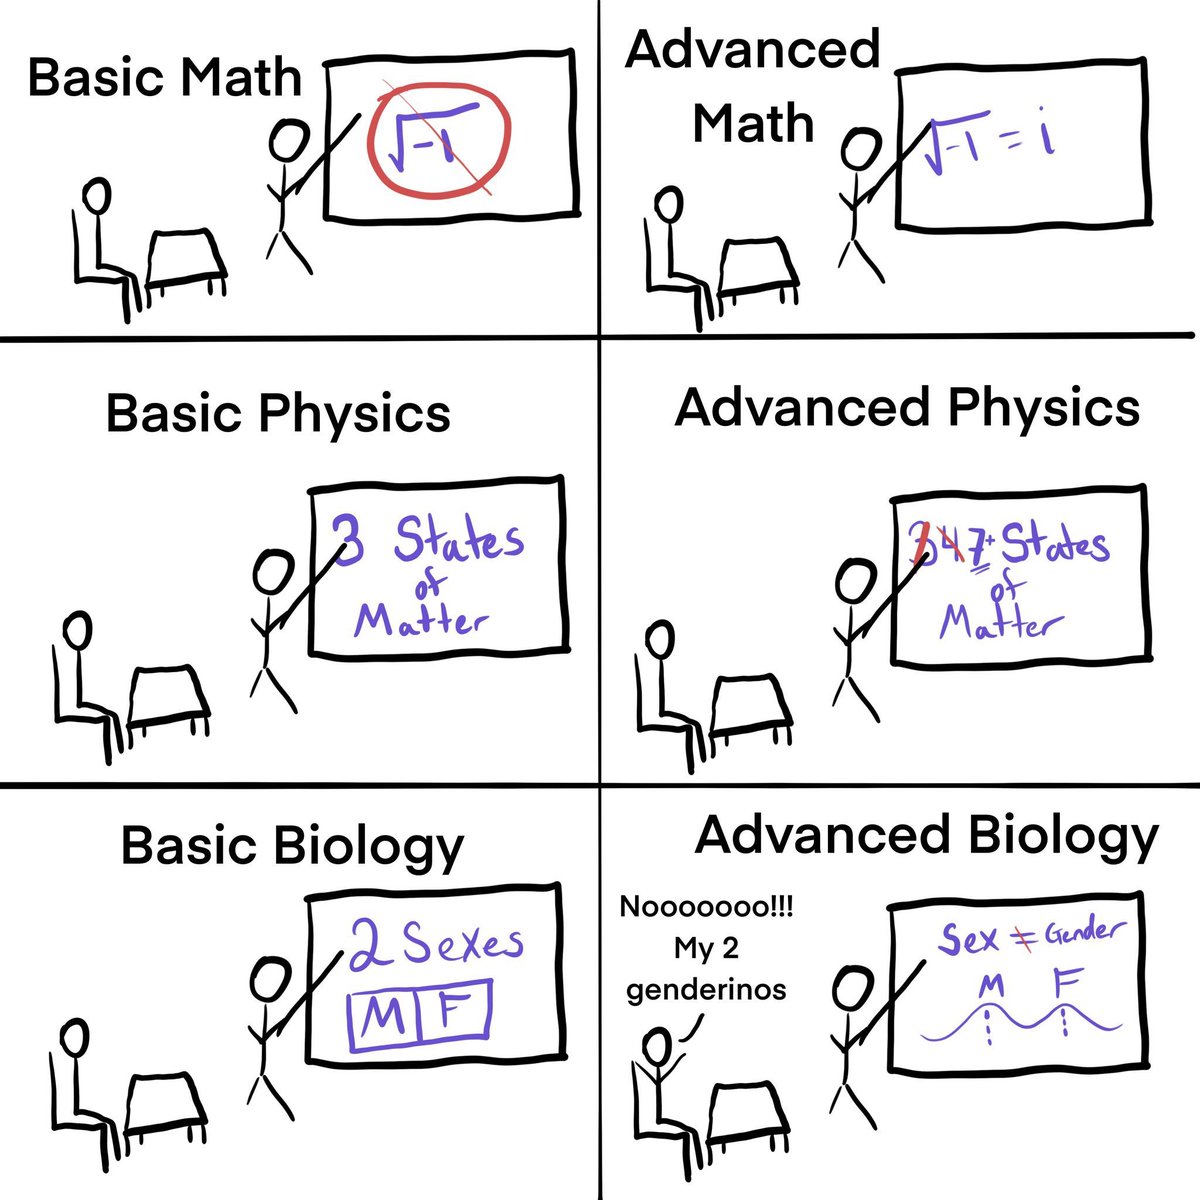 Basic Math
√-1
Advanced
Math
√-1 = i
Basic Physics
3 States
of
Matter
Advanced Physics
3 4 7+ States
of
Matter
Basic Biology
2 Sexes
M F
Advanced Biology
Nooooooo!!!
My 2
genderinos
Sex ≠ Gender
M F